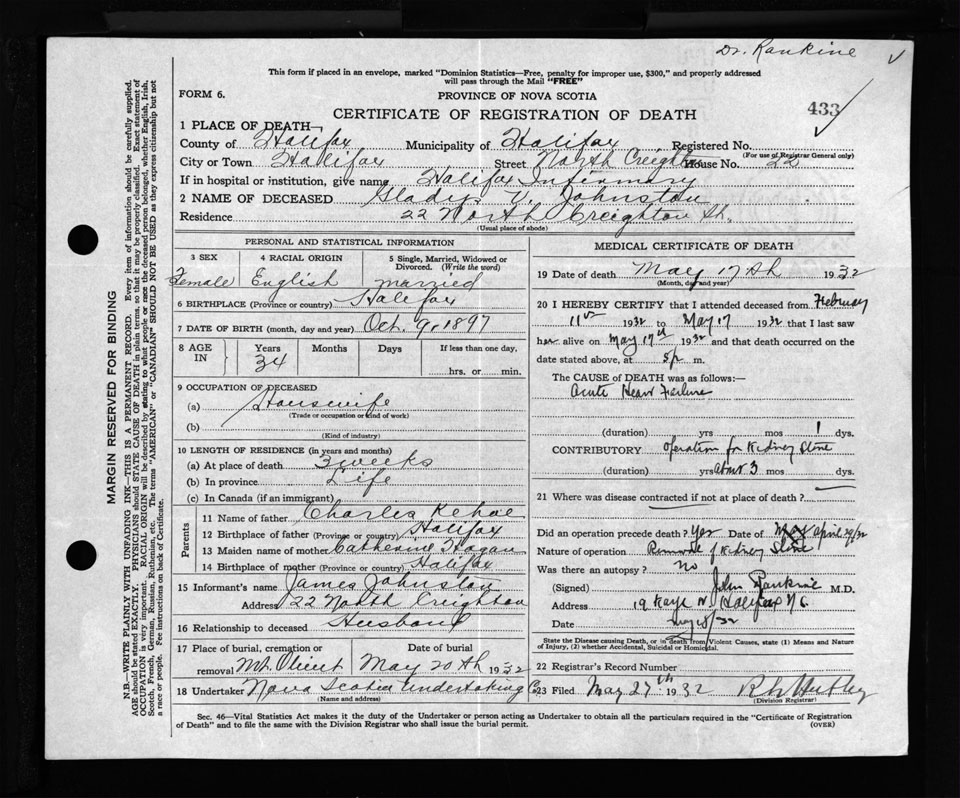 Dr. Rankine
This form if placed in an envelope, marked "Dominion Statistics—Free, penalty for improper use, $300," and properly addressed
will pass through the Mail "FREE"
FORM 6.
PROVINCE OF NOVA SCOTIA
433
CERTIFICATE OF REGISTRATION OF DEATH
1 PLACE OF DEATH—
County of Halifax Municipality of Halifax Registered No.
(For use of Registrar General only)
City or Town Halifax Street North Creighton House No. 22
If in hospital or institution, give name Halifax Infirmary
2 NAME OF DECEASED Gladys V. Johnston
Residence 22 North Creighton St.
(Usual place of abode)
PERSONAL AND STATISTICAL INFORMATION
3 SEX 4 RACIAL ORIGIN 5 Single, Married, Widowed or
Divorced. (Write the word)
Female English married
6 BIRTHPLACE (Province or country) Halifax
7 DATE OF BIRTH (month, day and year) Oct. 9, 1897
8 AGE IN Years Months Days If less than one day,
34 hrs. or min.
9 OCCUPATION OF DECEASED
(a) Housewife
(Trade or occupation or kind of work)
(b)
(Kind of industry)
10 LENGTH OF RESIDENCE (in years and months)
(a) At place of death 3 weeks
(b) In province Life
(c) In Canada (if an immigrant)
Parents
11 Name of father Charles Kehoe
12 Birthplace of father (Province or country) Halifax
13 Maiden name of mother Catherine Hogan
14 Birthplace of mother (Province or country) Halifax
15 Informant's name James Johnston
Address 22 North Creighton
16 Relationship to deceased Husband
17 Place of burial, cremation or Date of burial
removal Mt. Olivet May 20th 1932
18 Undertaker Nova Scotia Undertaking Co
(Name and address)
MEDICAL CERTIFICATE OF DEATH
19 Date of death May 17th 1932
(Month, day and year)
20 I HEREBY CERTIFY that I attended deceased from February
11th 1932 to May 17 1932 that I last saw
her alive on May 17th 1932 and that death occurred on the
date stated above, at 5p m.
The CAUSE OF DEATH was as follows:—
Acute Heart Failure
(duration) yrs mos 1 dys.
CONTRIBUTORY Operation for Kidney Stone
(duration) yrs about 3 mos dys.
21 Where was disease contracted if not at place of death?
Did an operation precede death? Yes Date of April 29/32
Nature of operation Removal of Kidney Stone
Was there an autopsy? No
(Signed) John Rankine M.D.
Address 19 Kaye St. Halifax N.S.
Date May 18/32
State the Disease causing Death, or in death from Violent Causes, state (1) Means and Nature
of Injury, (2) whether Accidental, Suicidal or Homicidal.
22 Registrar's Record Number
23 Filed May 27th 1932
(Division Registrar)
Sec. 46—Vital Statistics Act makes it the duty of the Undertaker or person acting as Undertaker to obtain all the particulars required in the "Certificate of Registration
of Death" and to file the same with the Division Registrar who shall issue the burial permit. (OVER)
MARGIN RESERVED FOR BINDING
N.B.—WRITE PLAINLY WITH UNFADING INK—THIS IS A PERMANENT RECORD. Every item of information should be carefully supplied.
AGE should be stated EXACTLY. PHYSICIANS should STATE CAUSE OF DEATH in plain terms, so that it may be properly classified. Exact statement of
OCCUPATION is very important. RACIAL ORIGIN will be described by stating to what people or race the deceased person belonged, whether English, Irish,
Scotch, French, German, Russian, Ruthenian, etc. The terms "AMERICAN" or "CANADIAN" SHOULD NOT BE USED as they express citizenship but not
a race or people. Fee instructions on back of Certificate.